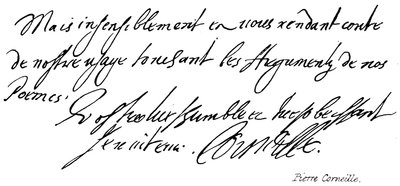 Mais insensiblement en vous rendant conte
de nostre usage touchant les Argumentz de nos
Poemes.
Vostre tres humble et tres obeissant
Serviteur. Corneille.
Pierre Corneille.